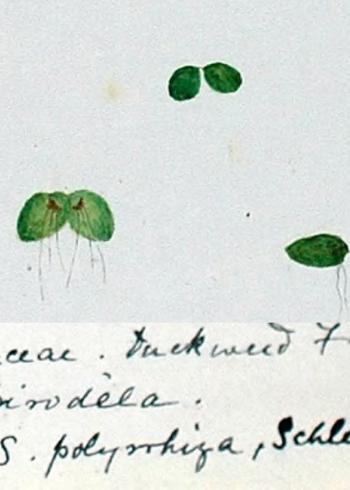 ceae. Duckweed F
irodela.
S. polyrrhiza, Schle